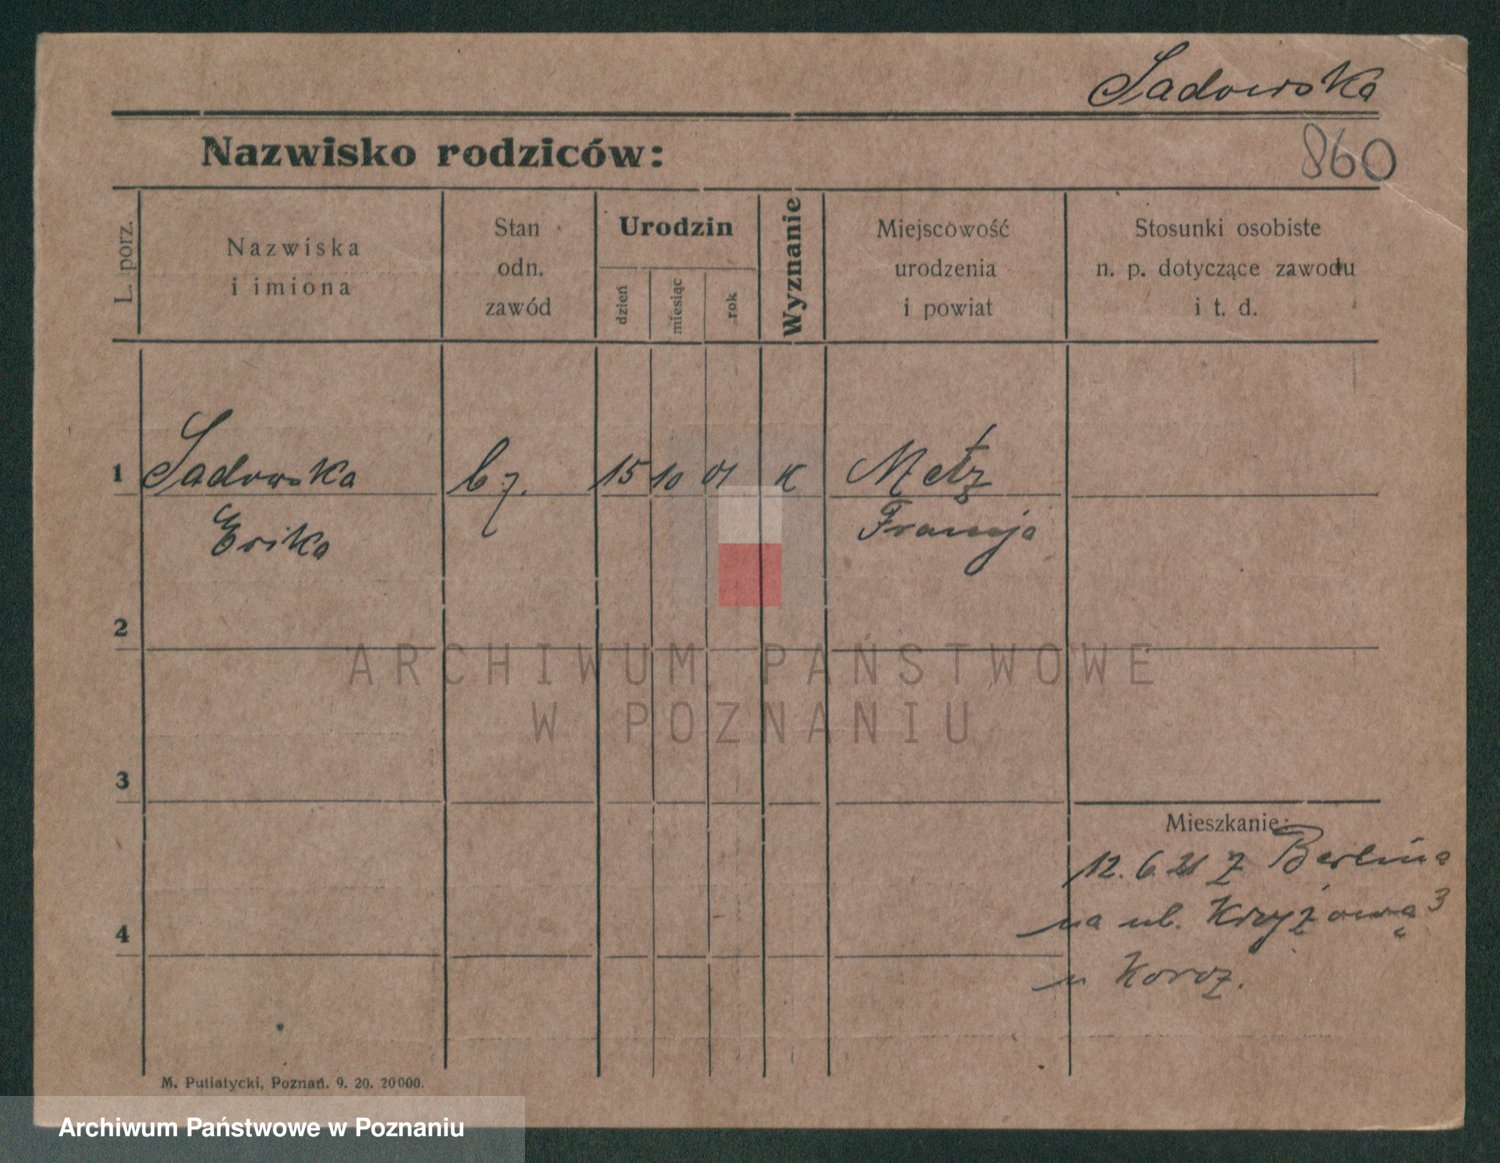 Sadowska
Nazwisko rodziców:
860
L. porz.
Nazwiska
i imiona
Stan
odn.
zawód
Urodzin
dzień
miesiąc
rok
Wyznanie
Miejscowość
urodzenia
i powiat
Stosunki osobiste
n. p. dotyczące zawodu
i t. d.
1
Sadowska
Erika
15 10 01
K
Metz
Francja
2
ARCHIWUM PAŃSTWOWE
W POZNANIU
3
Mieszkanie:
12.6.21 z Berlina
na ul. Krzyżową 3
u
4
M. Putiatycki, Poznań. 9. 20. 20000.
Archiwum Państwowe w Poznaniu